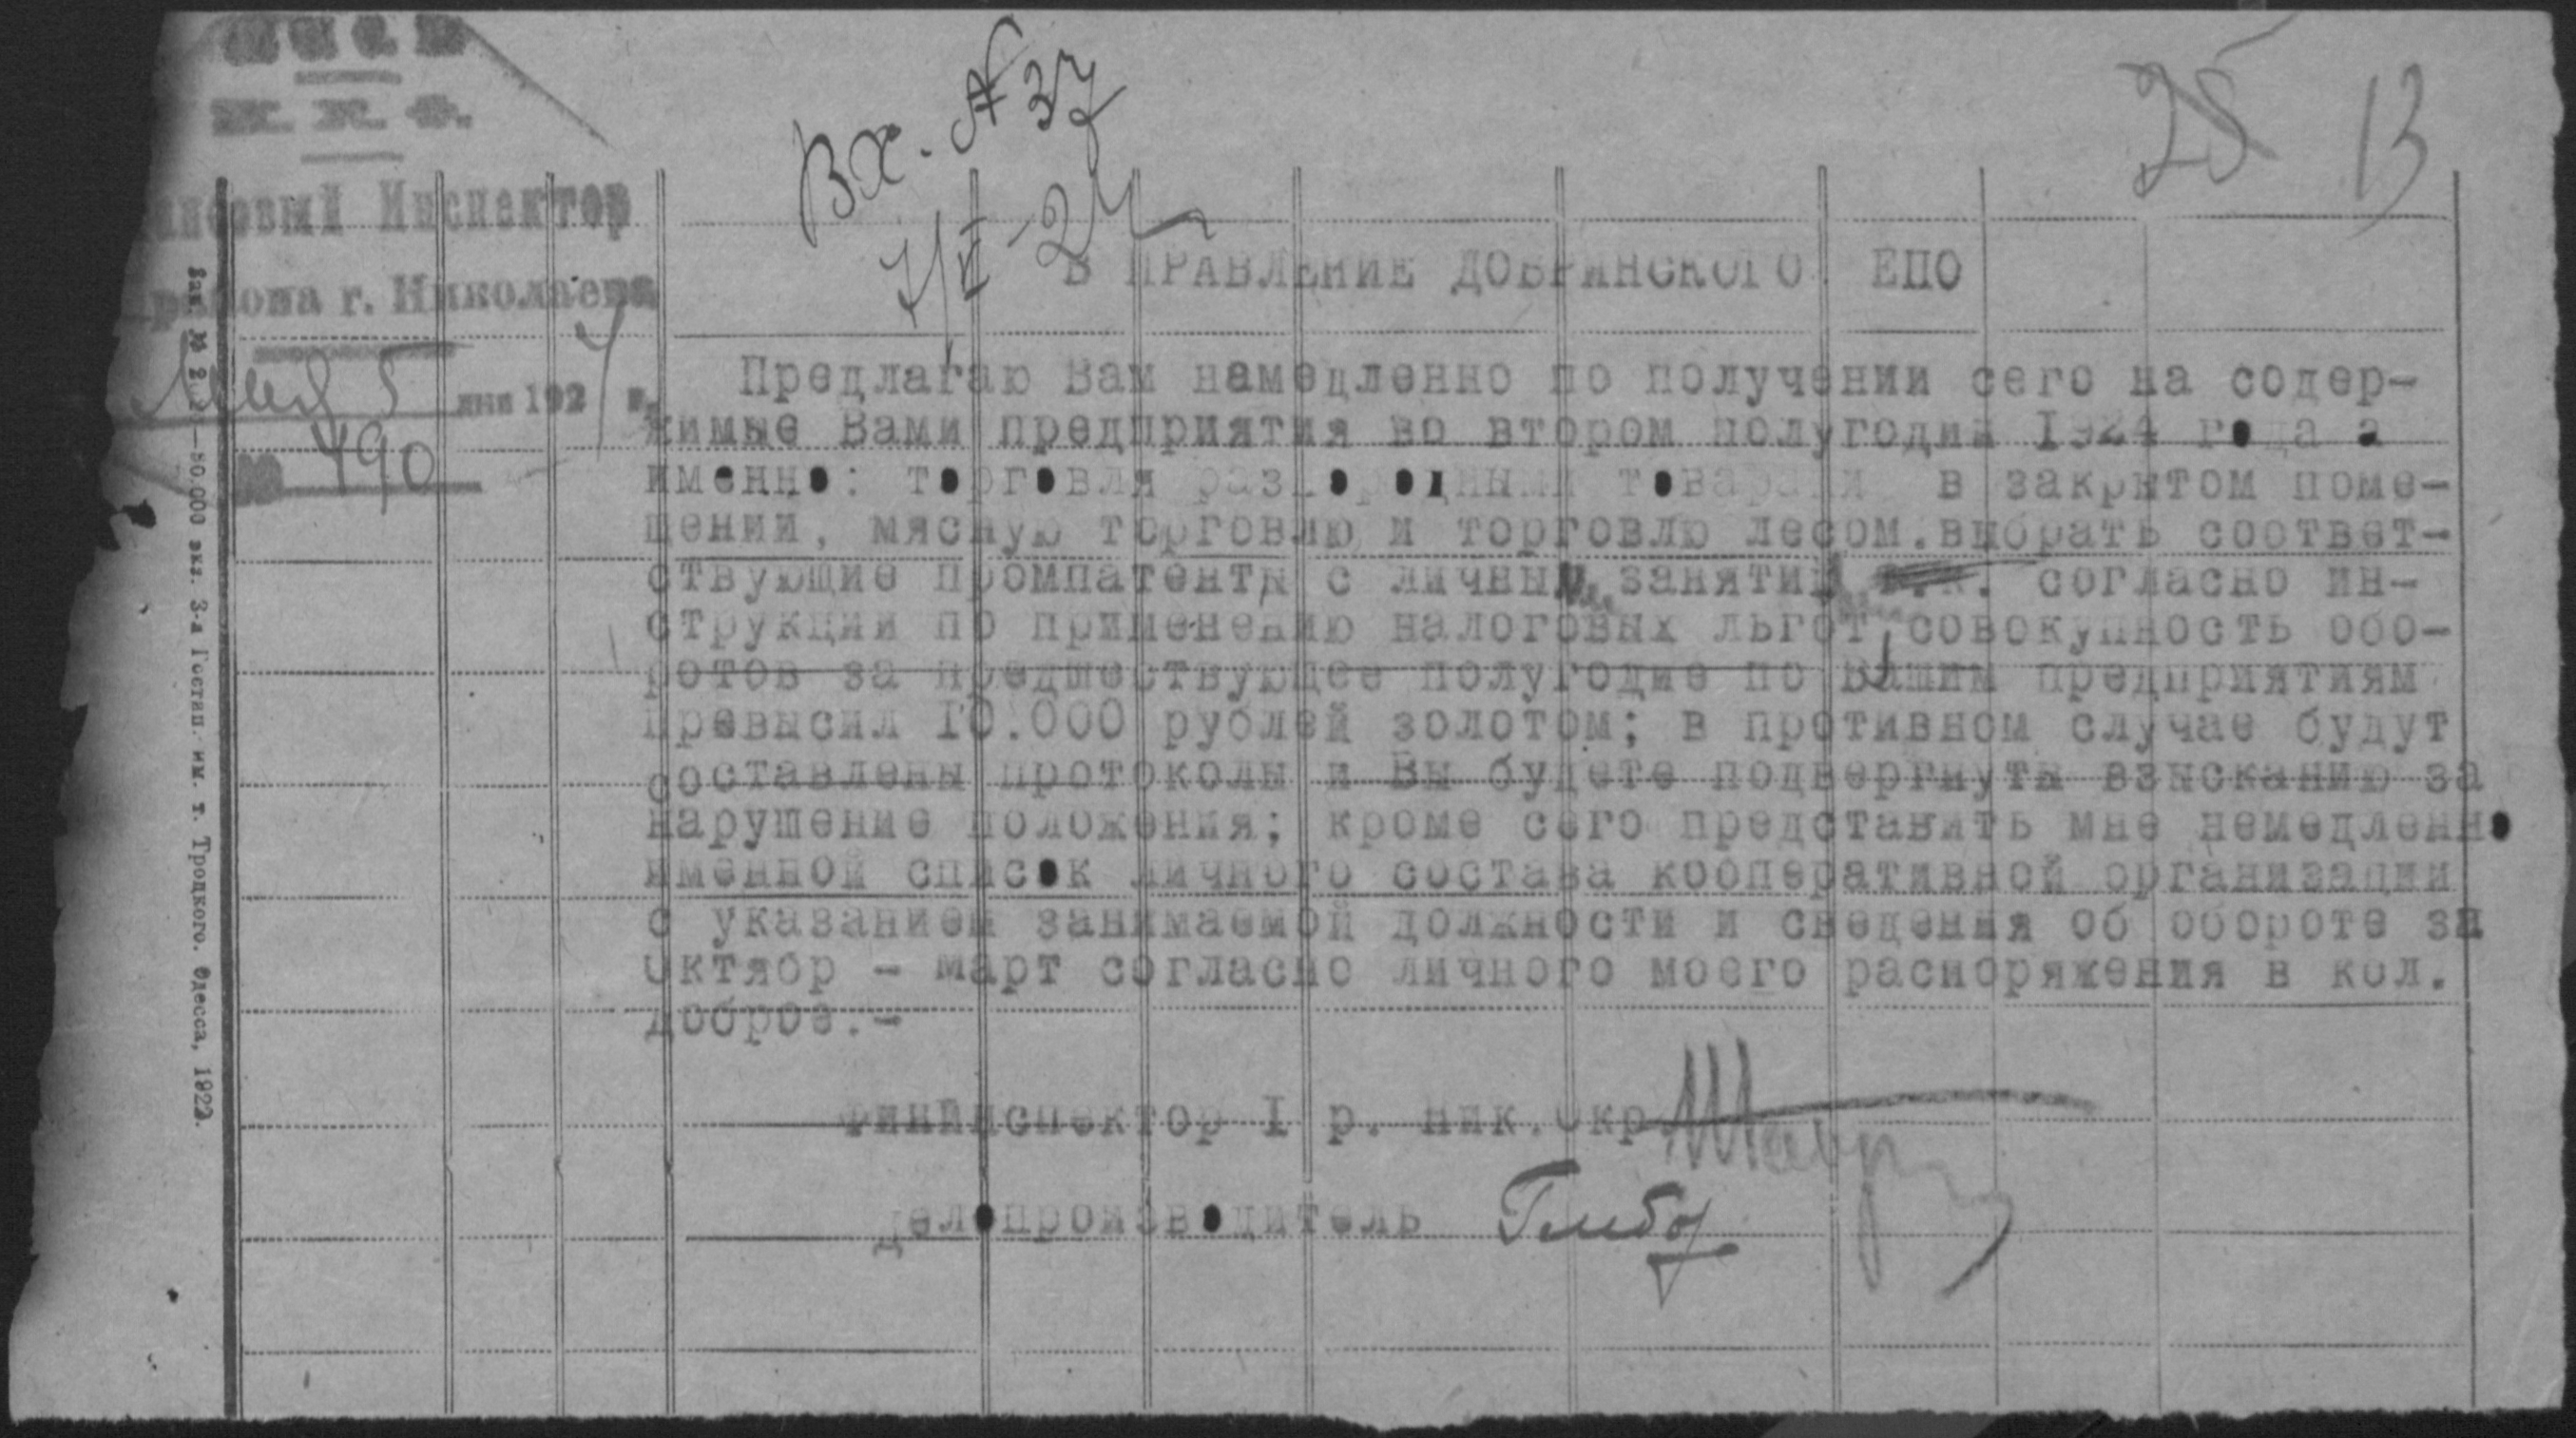 Н. К. Ф.
Инспектор
района г. Николаева
Мая 5 дня 1924 г.
№ 490
Вх. № 37
7/V-24
25 13
В ПРАВЛЕНИЕ ДОБРИНСКОГО ЕПО
Предлагаю Вам намедленно по получении сего на содер-
жимые Вами предприятия во втором полугодии 1924 года а
именно: торговля разнородными товарами в закрытом поме-
щении, мясную торговлю и торговлю лесом.выбрать соответ-
ствующие промпатенты с личным занятий согласно ин-
струкции по применению налоговых льгот, совокупность обо-
ротов за предшествующее полугодие по Вашим предприятиям
превысил 10.000 рублей золотом; в противном случае будут
составлены протоколы и Вы будете подвергнуты взысканию за
нарушение положения; кроме сего представить мне немедленно
именной список личного состава кооперативной организации
с указанием занимаемой должности и сведения об обороте за
октябр - март согласно личного моего распоряжения в кол.
доброе.-
Фининспектор I р. Ник.Окр.
Делопроизводитель
Зак. № 2 —80.000 экз. 3-я Гостип. им. т. Троцкого. Одесса, 1922.